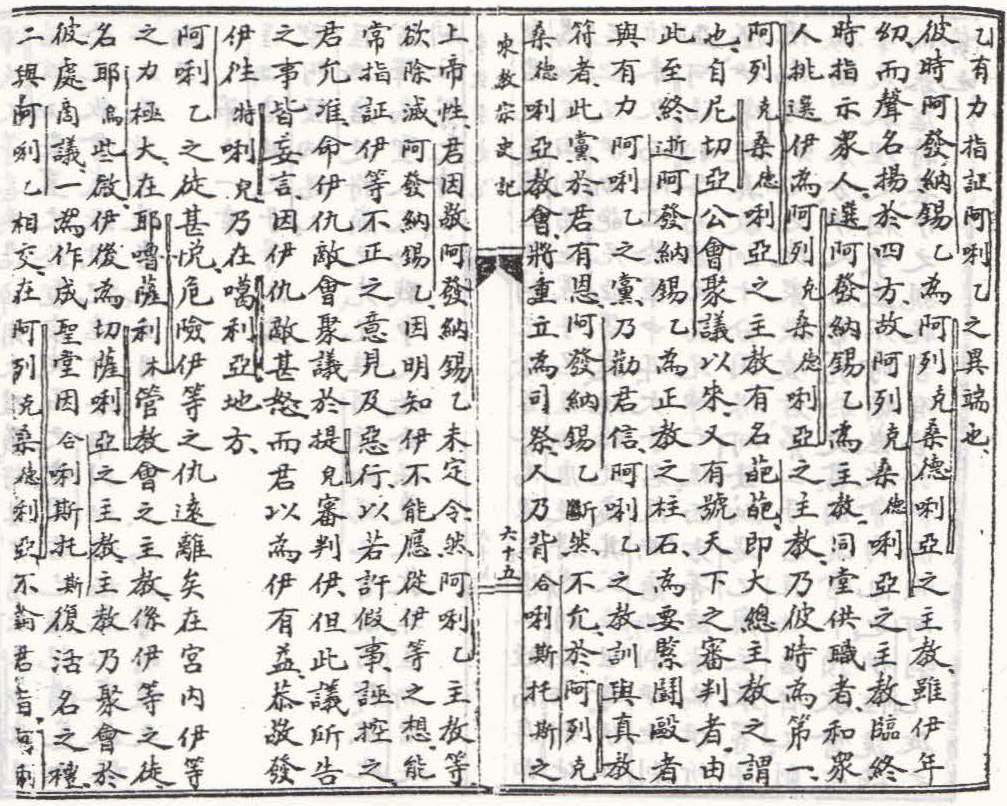 乙有力指証阿唎乙之異端也
彼時阿發納錫乙為阿列克桑德唎亞之主教雖伊年
幼而聲名揚於四方故阿列克桑德唎亞之主教臨終
時指示眾人選阿發納錫乙為主教同堂供職者和眾
人挑選伊為阿列克桑德唎亞之主教乃彼時為第一
阿列克桑德唎亞之主教有名葩葩即大總主教之謂
也自尼切亞公會聚議以來又有號天下之審判者由
此至終逝阿發納錫乙為正教之柱石為要緊鬪毆者
與有力阿唎乙之黨乃勸君信阿唎乙之教訓與真教
符者此黨於君有恩阿發納錫乙斷然不允於阿列克
桑德唎亞教會將重立為司祭人乃背合唎斯托斯之
東教宗史記
六十五
上帝性君因敬阿發納錫乙未定令然阿唎乙主教等
欲除滅阿發納錫乙因明知伊不能應從伊等之想能
常指証伊等不正之意見及惡行以若許假事誣控之
君允准命伊仇敵會聚議於提兒審判伊但此議所告
之事皆妄言因伊仇敵甚怒而君以為伊有益恭敬發
伊往特唎兒乃在噶利亞地方
阿唎乙之徒甚悅危險伊等之仇遠離矣在宮內伊等
之力極大在耶嚕薩利木管教會之主教係伊等之徒
名耶烏些啟伊後為切薩唎亞之主教主教乃聚會於
彼處商議一為作成聖堂因合唎斯托斯復活名之禮
二與阿唎乙相交在阿列克桑德利亞不論君旨